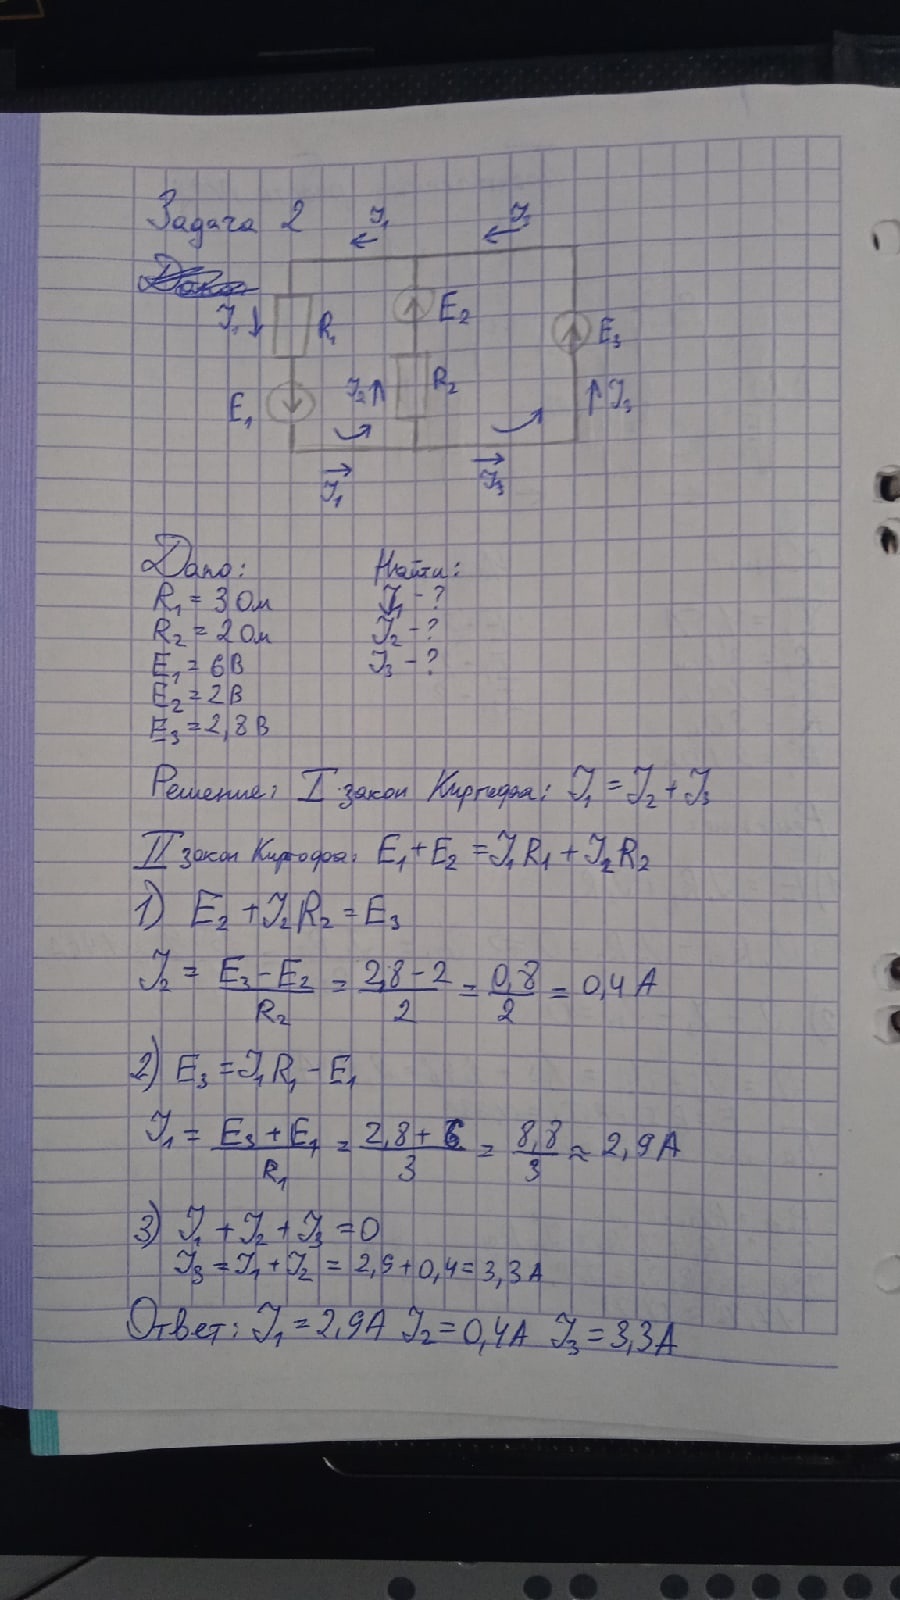 Задача 2
I₁ I₃
Дано
I₁ R₁ E₂ E₃
E₁ I₂ R₂ I₃
I₁ I₃
Дано: Найти:
R₁ = 3 Ом I₁ - ?
R₂ = 2 Ом I₂ - ?
E₁ = 6 В I₃ - ?
E₂ = 2 В
E₃ = 2,8 В
Решение: I закон Киргофа: I₁ = I₂ + I₃
II закон Киргофа: E₁ + E₂ = I₁R₁ + I₂R₂
1) E₂ + I₂R₂ = E₃
I₂ = (E₃ - E₂)/R₂ = (2,8 - 2)/2 = 0,8/2 = 0,4 А
2) E₃ = I₁R₁ - E₁
I₁ = (E₃ + E₁)/R₁ = (2,8 + 6)/3 = 8,8/3 ≈ 2,9 А
3) I₁ + I₂ + I₃ = 0
I₃ = I₁ + I₂ = 2,9 + 0,4 = 3,3 А
Ответ: I₁ = 2,9 А I₂ = 0,4 А I₃ = 3,3 А